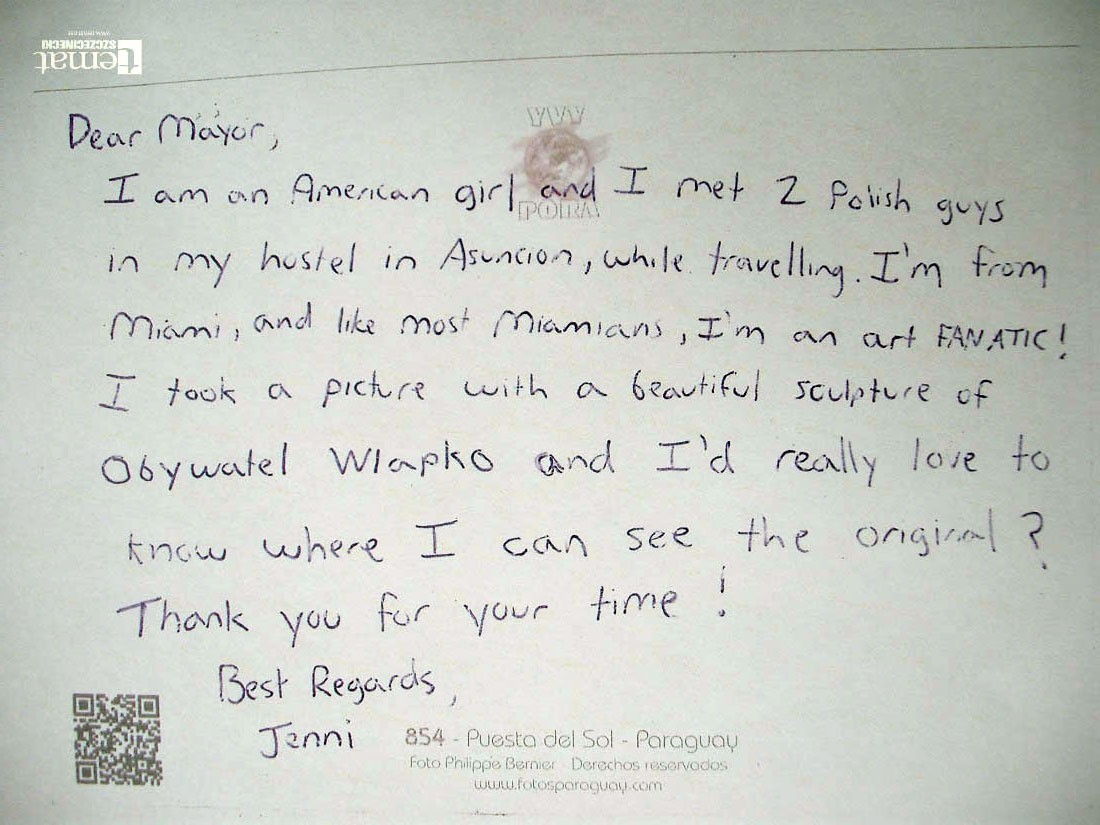 temat
SZCZECINECKI
Dear Mayor,
YVY
PORÃ
I am an American girl and I met 2 Polish guys
in my hostel in Asuncion, while travelling. I'm from
Miami, and like most Miamians, I'm an art FANATIC!
I took a picture with a beautiful sculpture of
Obywatel Wlapko and I'd really love to
know where I can see the original?
Thank you for your time!
Best Regards,
Jenni
854 - Puesta del Sol - Paraguay
Foto Philippe Bernier Derechos reservados
www.fotosparaguay.com